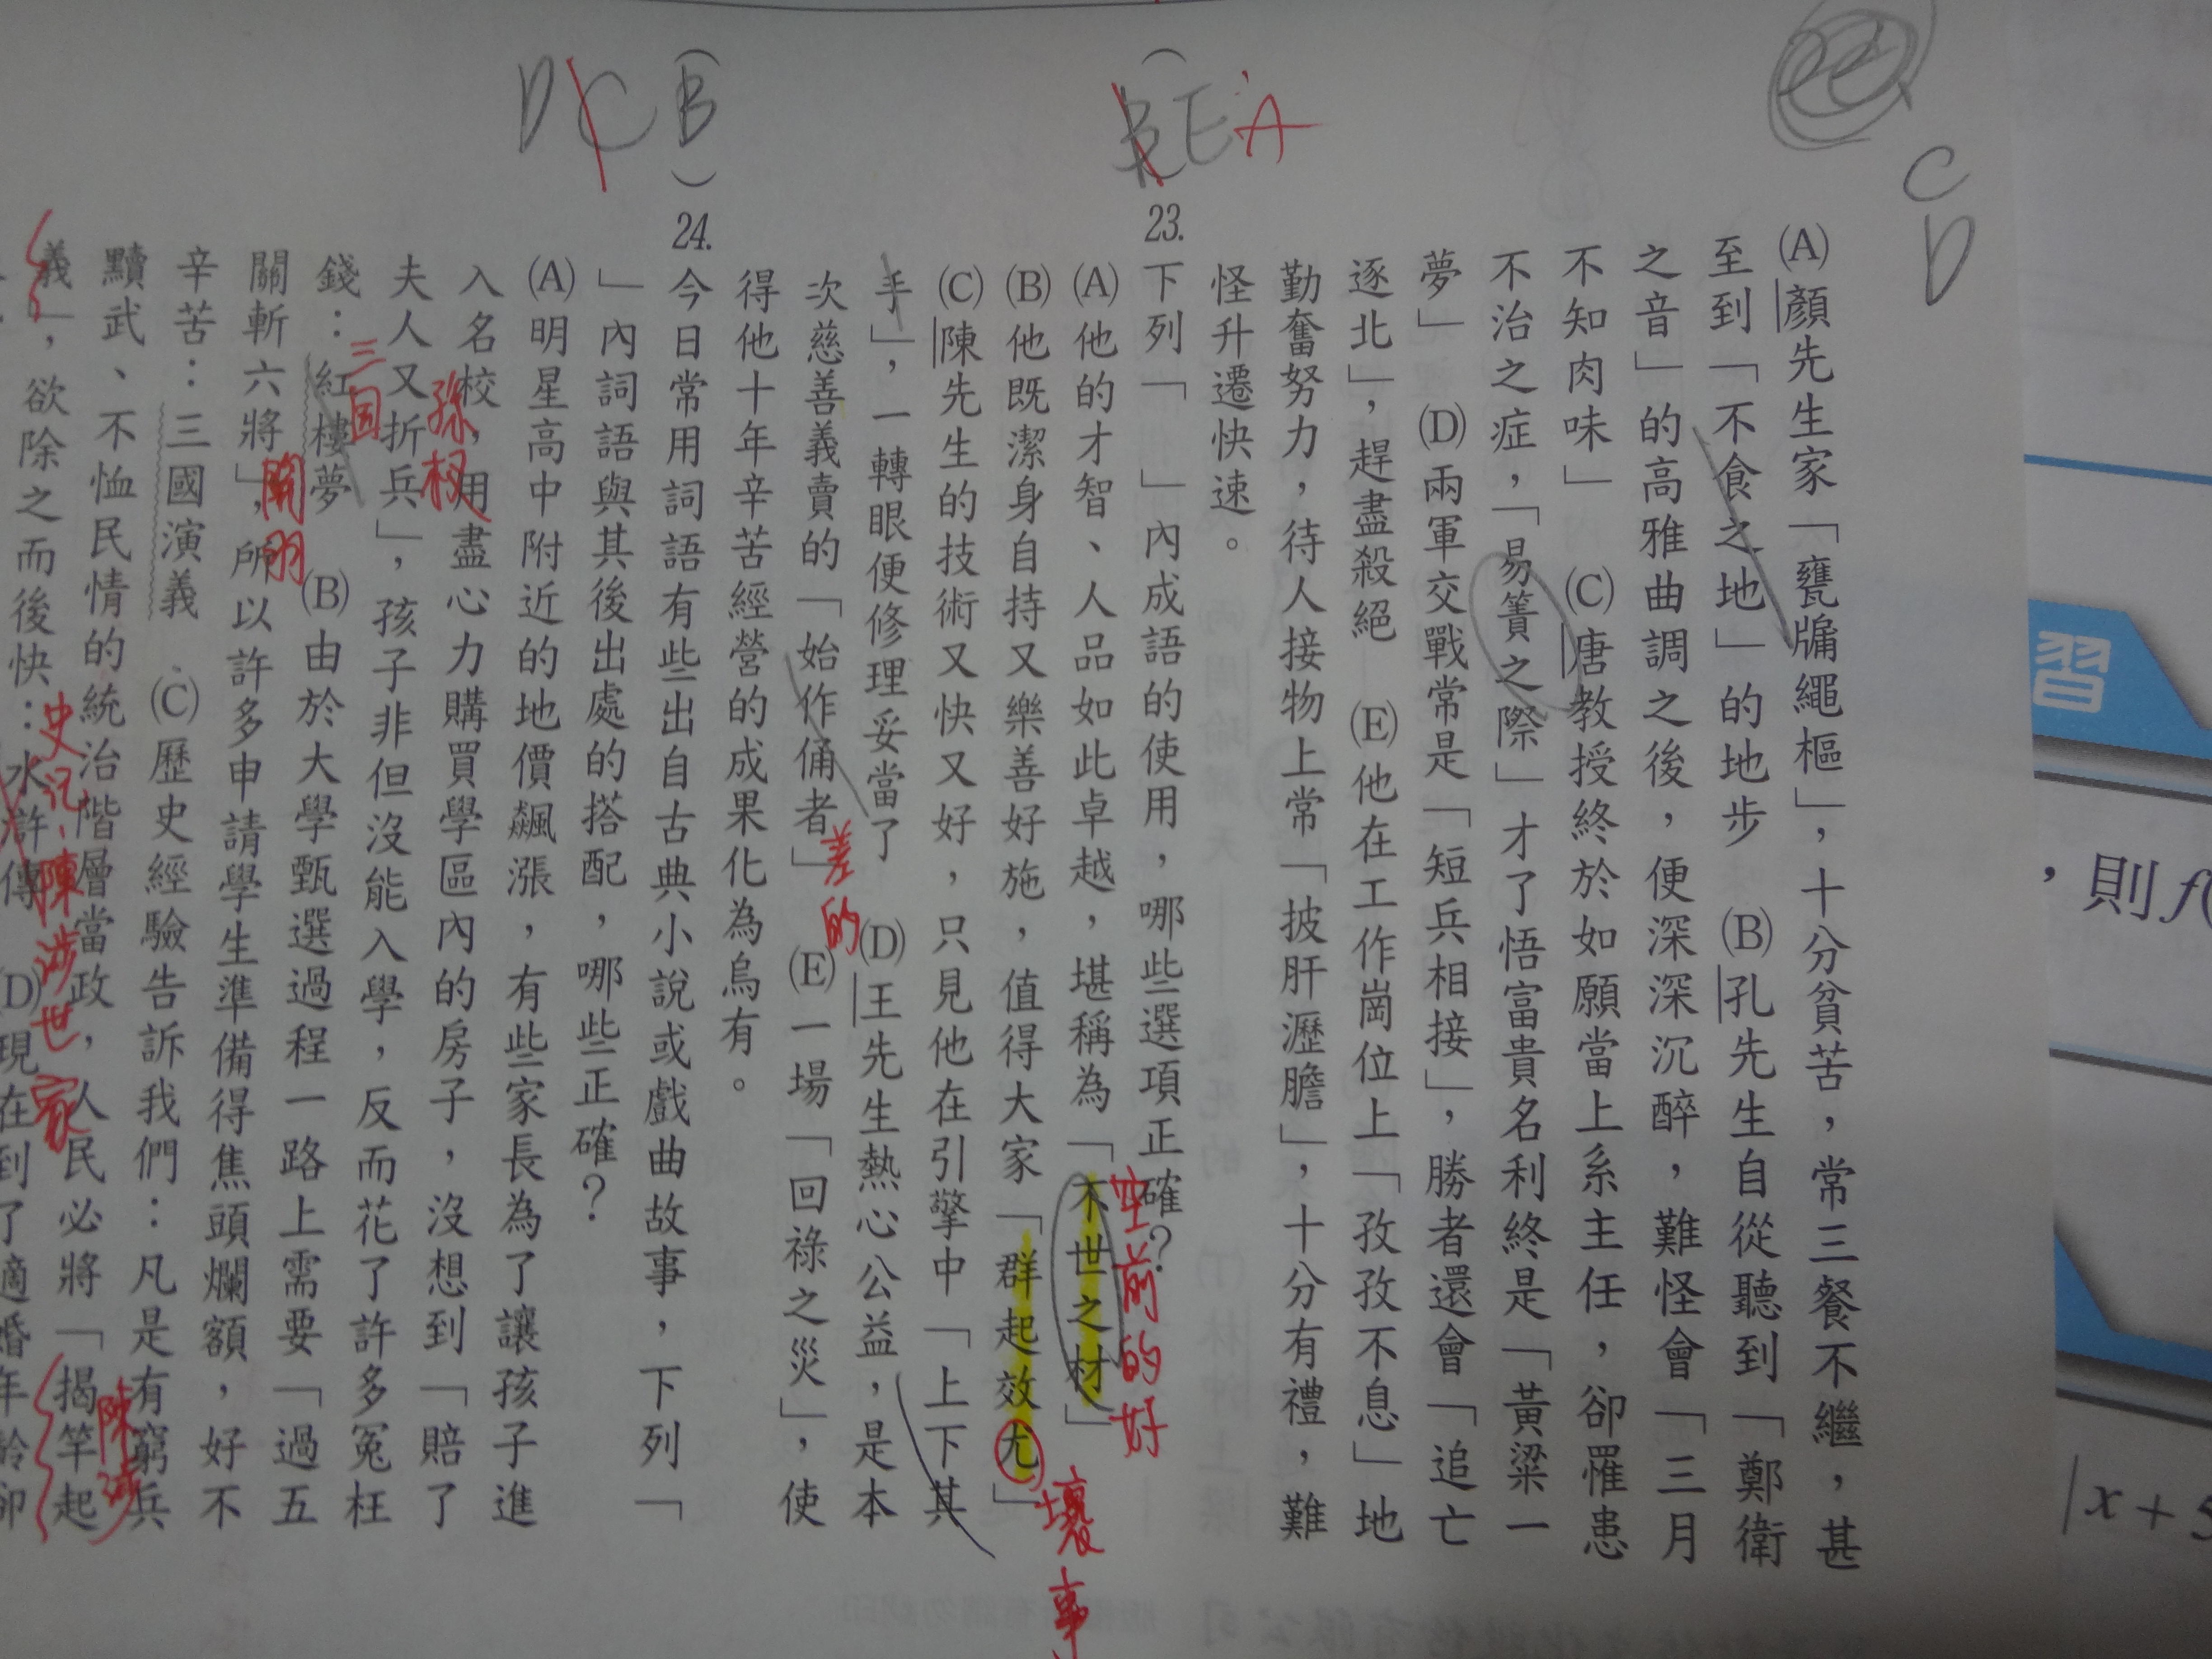 C
D
(A)顏先生家「甕牖繩樞」，十分貧苦，常三餐不繼，甚
至到「不食之地」的地步　(B)孔先生自從聽到「鄭衛
之音」的高雅曲調之後，便深深沉醉，難怪會「三月
不知肉味」　(C)唐教授終於如願當上系主任，卻罹患
不治之症，「易簀之際」才了悟富貴名利終是「黃粱一
夢」　(D)兩軍交戰常是「短兵相接」，勝者還會「追亡
逐北」，趕盡殺絕　(E)他在工作崗位上「孜孜不息」地
勤奮努力，待人接物上常「披肝瀝膽」，十分有禮，難
怪升遷快速。
(BE A
)23.下列「　」內成語的使用，哪些選項正確？
空前的好
(A)他的才智、人品如此卓越，堪稱為「不世之材」
壞事
(B)他既潔身自持又樂善好施，值得大家「群起效尤」
(C)陳先生的技術又快又好，只見他在引擎中「上下其
手」，一轉眼便修理妥當了　(D)王先生熱心公益，是本
差的
次慈善義賣的「始作俑者」　(E)一場「回祿之災」，使
得他十年辛苦經營的成果化為烏有。
(DCB)24.今日常用詞語有些出自古典小說或戲曲故事，下列「
」內詞語與其後出處的搭配，哪些正確？
(A)明星高中附近的地價飆漲，有些家長為了讓孩子進
入名校，用盡心力購買學區內的房子，沒想到「賠了
孫权
夫人又折兵」，孩子非但沒能入學，反而花了許多冤枉
三国
錢：紅樓夢　(B)由於大學甄選過程一路上需要「過五
關羽
關斬六將」，所以許多申請學生準備得焦頭爛額，好不
辛苦：三國演義　(C)歷史經驗告訴我們：凡是有窮兵
黷武、不恤民情的統治階層當政，人民必將「揭竿起
陳涉
義」，欲除之而後快：水滸傳　(D)現在到了適婚年齡卻
史记、陳涉世家
習
，則f(
|x+5